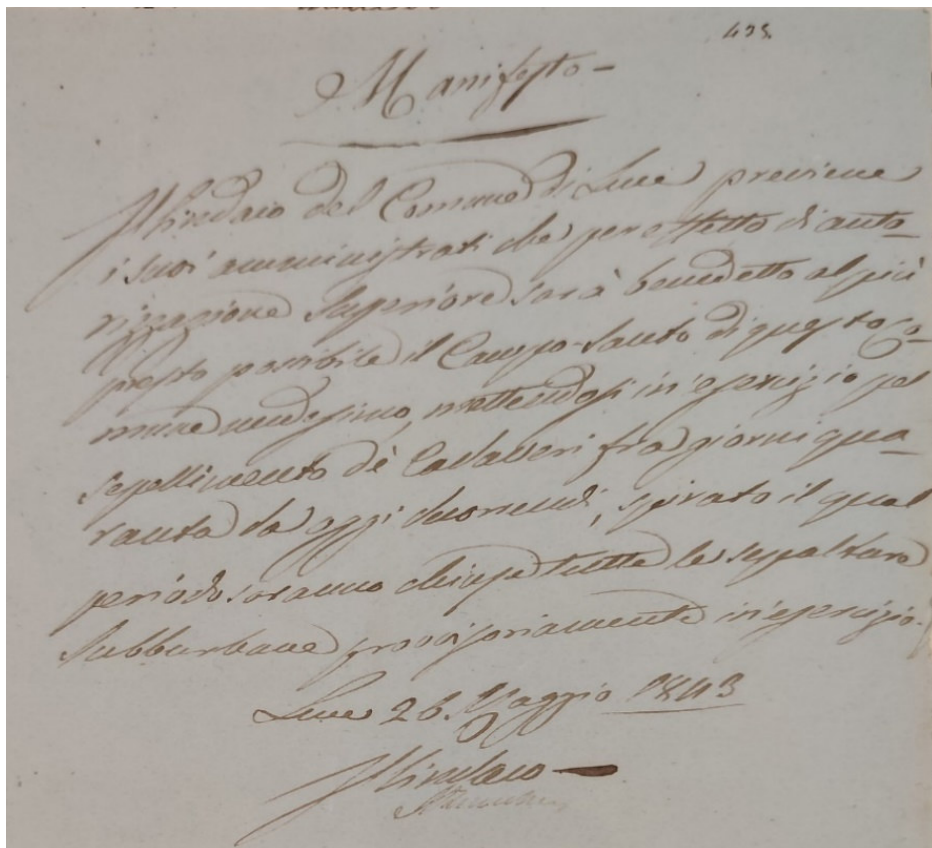 435.
Manifesto -
Il Sindaco del Comune di Lecce previene
i suoi amministrati che per effetto di auto-
rizzazione Superiore sarà benedetto al più
presto possibile il Campo-Santo di questo Co-
mune medesimo, mettendosi in esercizio pel
Seppellimento de' Cadaveri fra giorni qua-
ranta da oggi decorrendi, spirato il qual
periodo saranno chiuse tutte le sepolture
Subburbane provvisoriamente in esercizio.
Lecce 26 Maggio 1843
Il Sindaco